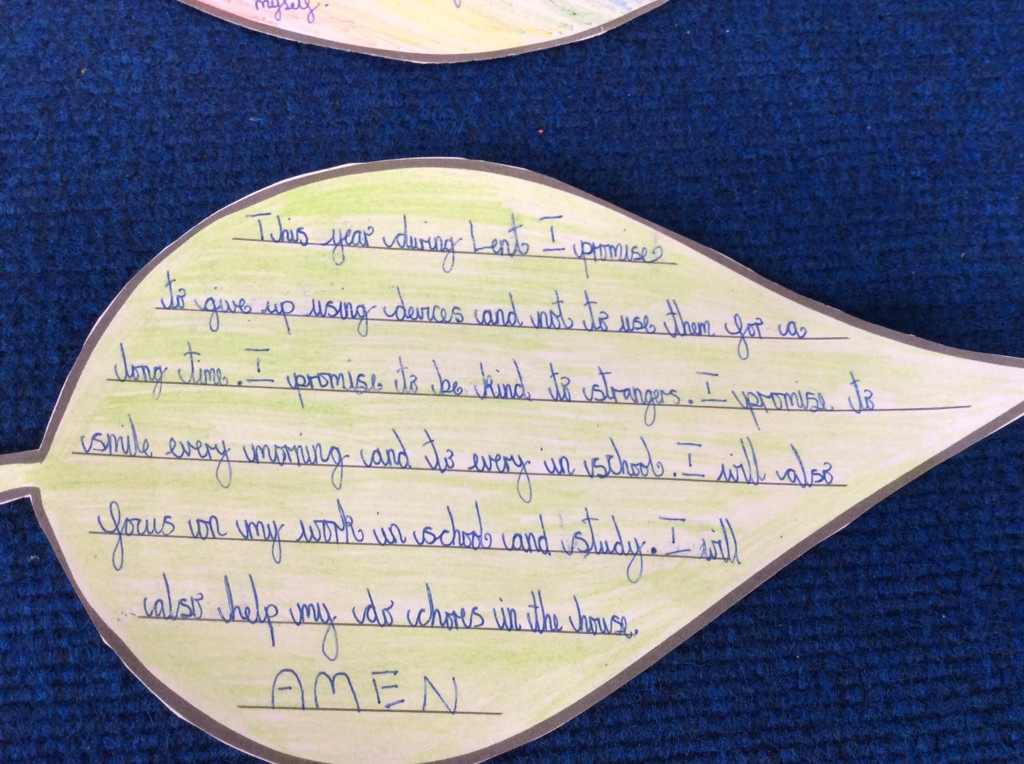 myself.
This year during Lent I promise
to give up using devices and not to use them for a
long time. I promise to be kind to strangers. I promise to
smile every morning and to every in school. I will also
focus on my work in school and study. I will
also help my do chores in the house.
AMEN